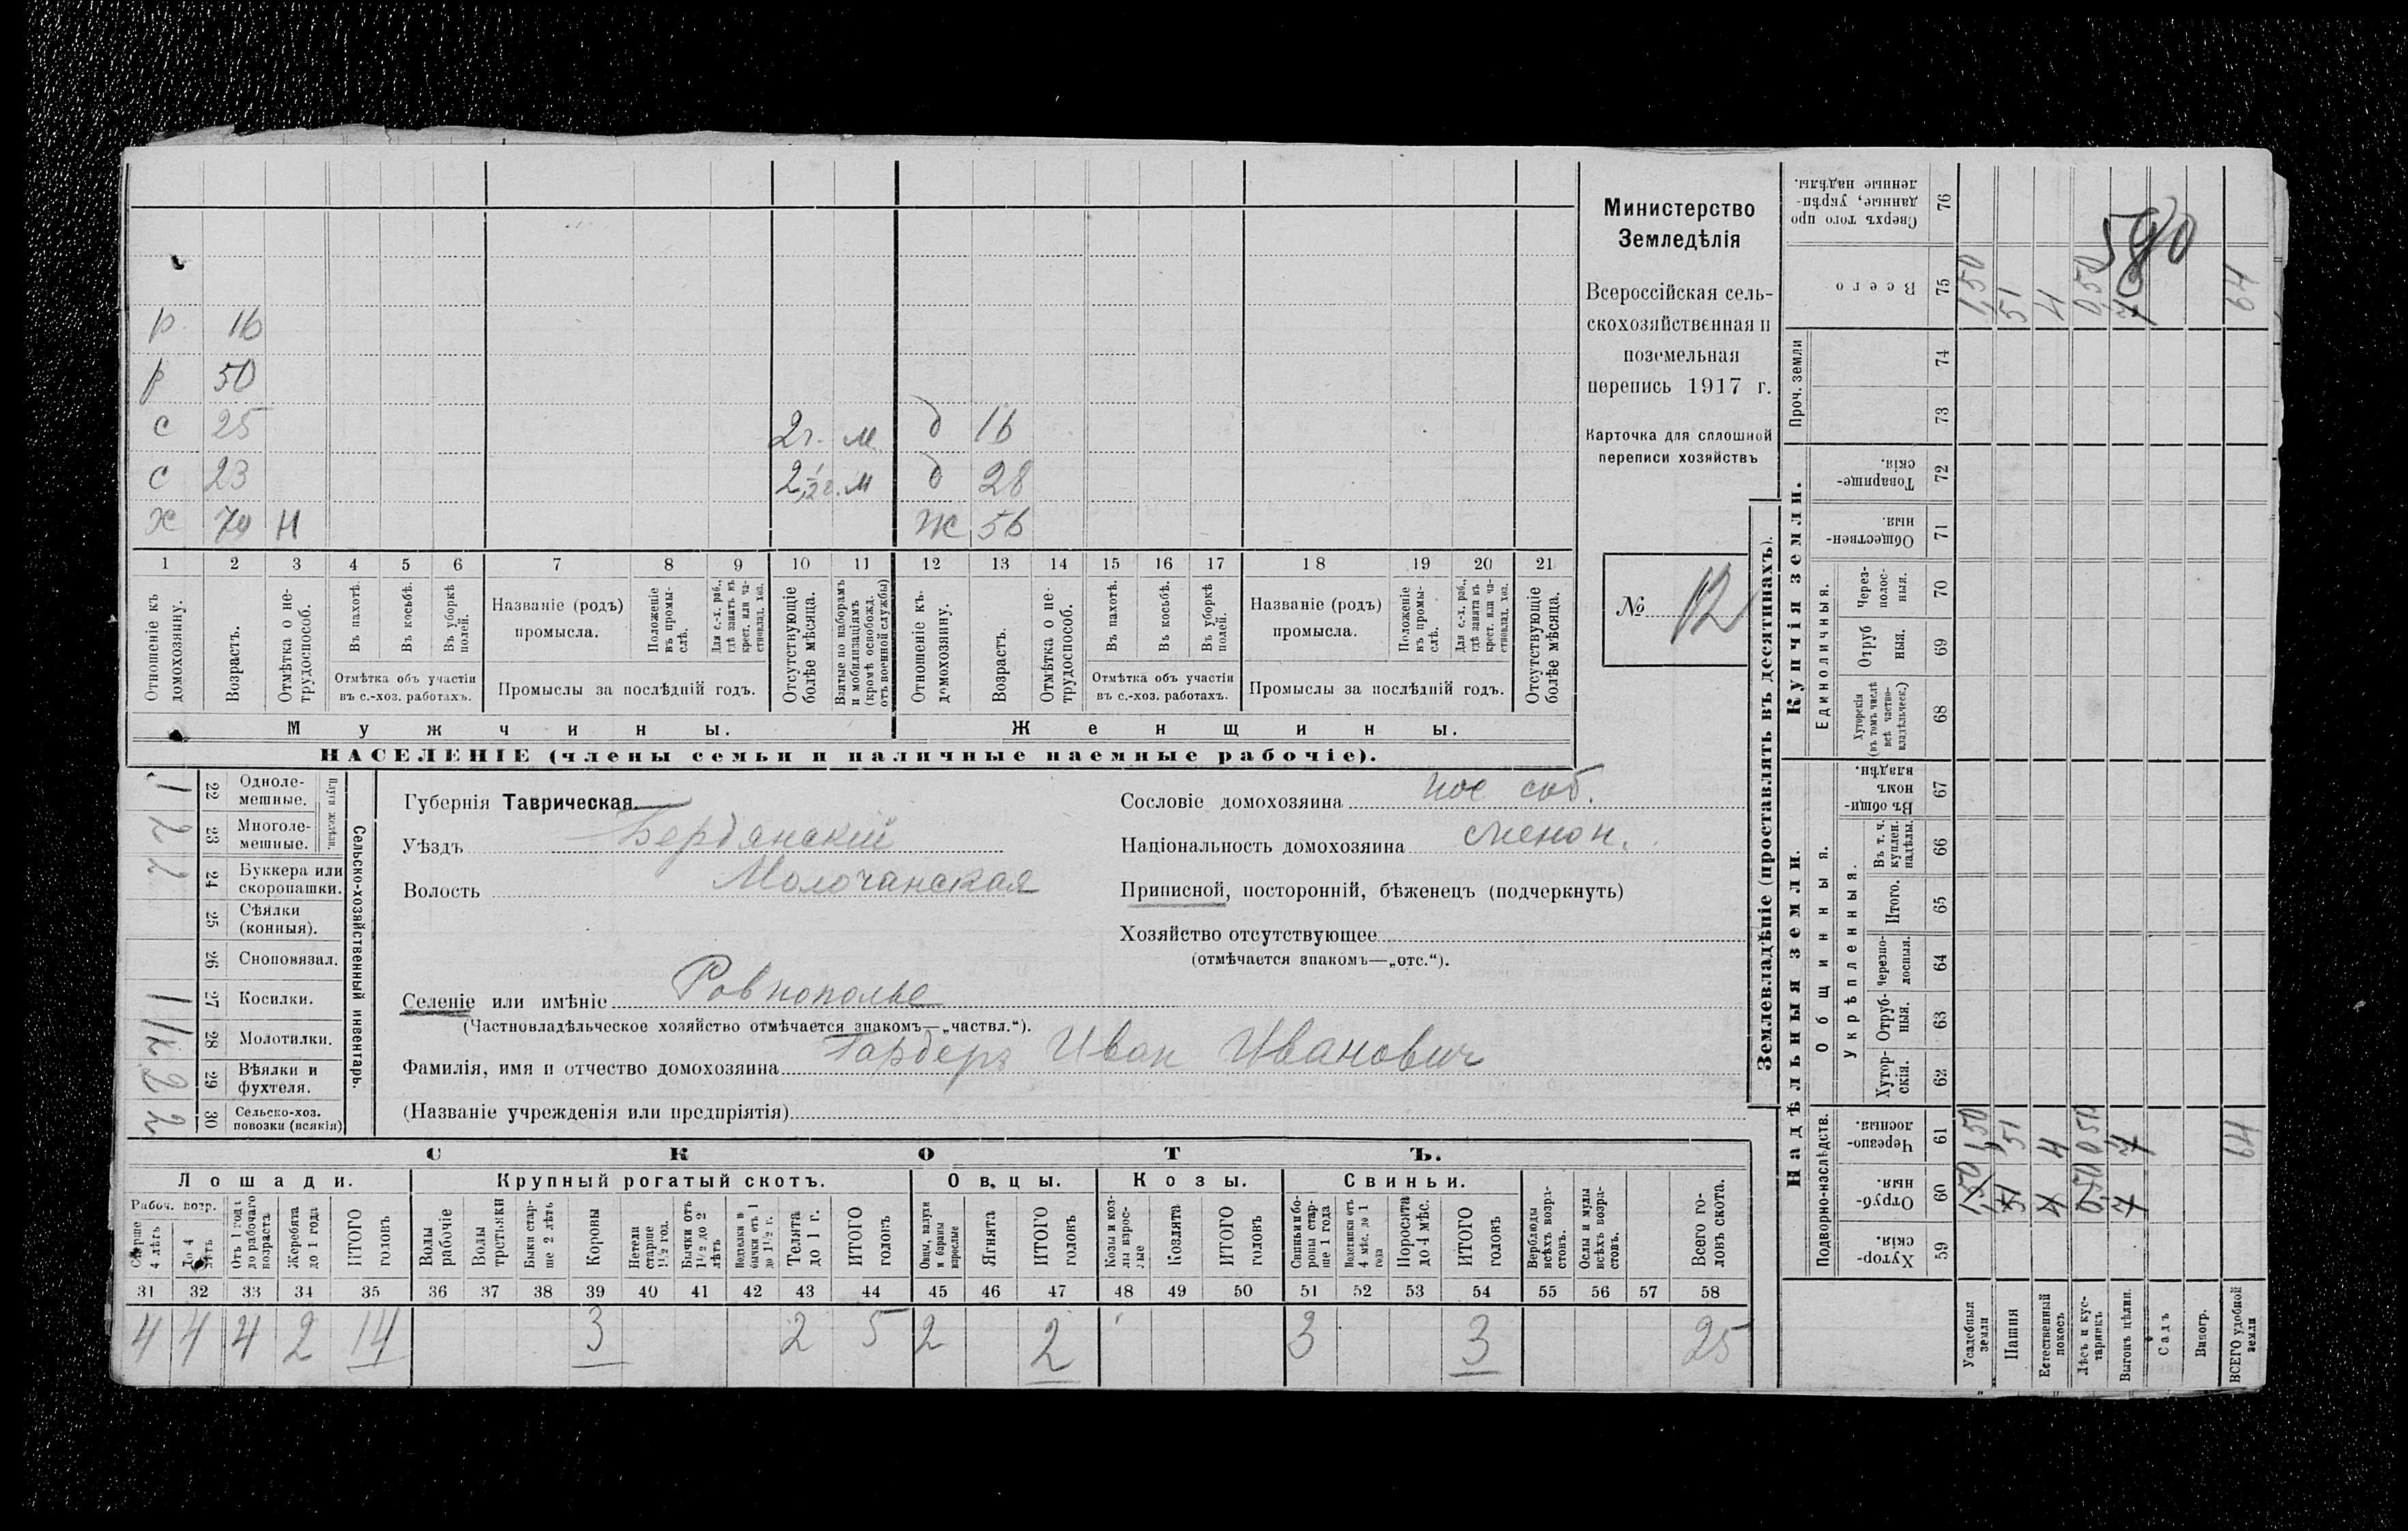 р. 16
р 50
с 25 2 г. м. д 16
с 23 2 1/2 г. м д 28
х 74 Н ж 56
1 2 3 4 5 6 7 8 9 10 11 12 13 14 15 16 17 18 19 20 21
Отношеніе къ домохозяину.
Возрастъ.
Отмѣтка о не-трудоспособ.
Въ пахотѣ.
Въ косьбѣ.
Въ уборкѣ полей.
Отмѣтка объ участіи въ с.-хоз. работахъ.
Названіе (родъ) промысла.
Положеніе въ промы-слѣ.
Для с.-х. раб., гдѣ занятъ въ крест. или ча-стновлад. хоз.
Промыслы за послѣдній годъ.
Отсутствующіе болѣе мѣсяца.
Взятые по наборамъ и мобилизаціямъ (кромѣ освобожд. отъ военной службы)
Отношеніе къ домохозяину.
Возрастъ.
Отмѣтка о не-трудоспособ.
Въ пахотѣ.
Въ косьбѣ.
Въ уборкѣ полей.
Отмѣтка объ участіи въ с.-хоз. работахъ.
Названіе (родъ) промысла.
Положеніе въ промы-слѣ.
Для с.-х. раб., гдѣ занята въ крест. или ча-стновлад. хоз.
Промыслы за послѣдній годъ.
Отсутствующіе болѣе мѣсяца.
Мужчины.
Женщины.
НАСЕЛЕНІЕ (члены семьи и наличные наемные рабочіе).
Министерство
Земледѣлія
Всероссійская сель-
скохозяйственная и
поземельная
перепись 1917 г.
Карточка для сплошной
переписи хозяйствъ
№ 12
Сельско-хозяйственный инвентарь.
Плуги желѣзн.
1 22 Одноле-мешные.
2 23 Многоле-мешные.
2 24 Буккера или скоропашки.
25 Сѣялки (конныя).
26 Сноповязал.
1 27 Косилки.
28 Молотилки.
2 29 Вѣялки и фухтеля.
2 30 Сельско-хоз. повозки (всякія)
Губернія Таврическая
Уѣздъ Бердянскій
Волость Молочанская
Селеніе или имѣніе Ровнополье
(Частновладѣльческое хозяйство отмѣчается знакомъ—„частвл.“).
Фамилія, имя и отчество домохозяина Гардеръ Иван Иванович
(Названіе учрежденія или предпріятія)
Сословіе домохозяина пос соб.
Національность домохозяина менон.
Приписной, посторонній, бѣженецъ (подчеркнуть)
Хозяйство отсутствующее
(отмѣчается знакомъ—„отс.“).
СКОТЪ.
Лошади. Крупный рогатый скотъ. Овцы. Козы. Свиньи.
Рабоч. возр.
Старше 4 лѣтъ
До 4 лѣтъ
Отъ 1 года до рабочаго возраста
Жеребята до 1 года
ИТОГО головъ
Волы рабочіе
Волы третьяки
Быки стар-ше 2 лѣтъ
Коровы
Нетели старше 1½ год.
Бычки отъ 1½ до 2 лѣтъ
Подтелки и бычки отъ 1 до 1½ г.
Телята до 1 г.
ИТОГО головъ
Овцы, валухи и бараны взрослые
Ягнята
ИТОГО головъ
Козы и коз-лы взрос-лые
Козлята
ИТОГО головъ
Свиньи и бо-ровы стар-ше 1 года
Подсвинки отъ 4 мѣс. до 1 года
Поросята до 4 мѣс.
ИТОГО головъ
Верблюды всѣхъ возра-стовъ.
Ослы и мулы всѣхъ возра-стовъ.
Всего го-ловъ скота.
31 32 33 34 35 36 37 38 39 40 41 42 43 44 45 46 47 48 49 50 51 52 53 54 55 56 57 58
4 4 4 2 14 3 2 5 2 2 3 3 25
Землевладѣніе (проставлять въ десятинахъ).
Надѣльныя земли.
Купчія земли.
Проч. земли
Подворно-наслѣдств.
Общинныя.
Укрѣпленныя.
Единоличныя.
Сверхъ того про-данные, укрѣп-ленные надѣлы. 76
Всего 75
74
73
Товарище-скія. 72
Обществен-ныя. 71
Через-полос-ныя. 70
Отруб-ныя. 69
Хуторскія (въ томъ числѣ всѣ частно-владѣльческ.) 68
Въ общи-номъ владѣн. 67
Въ т. ч. куплен. надѣлы. 66
Итого. 65
Черезпо-лосныя. 64
Отруб-ныя. 63
Хутор-скія. 62
Черезпо-лосныя. 61
Отруб-ныя. 60
Хутор-скія. 59
Усадебныя земли
Пашня
Естественный покосъ
Лѣсъ и кус-тарникъ
Выгонъ цѣлин.
Садъ
Виногр.
ВСЕГО удобной земли
1,50 51 4 0,50 7 64
1,50 51 4 0,50 7 64
1,50 51 4 0,50 7
580